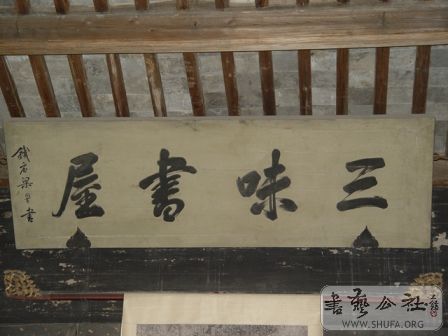 三味書屋
錢唐梁同書
書藝公社
WWW.SHUFA.ORG